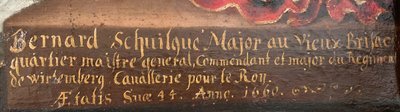 Bernard Schuilqué Major au Vieux Brisac
quartier maistre general, Commendant et major du Regiment
de wirtemberg Cavallerie pour le Roy.
Ætatis Suæ 44. Anno. 1660.